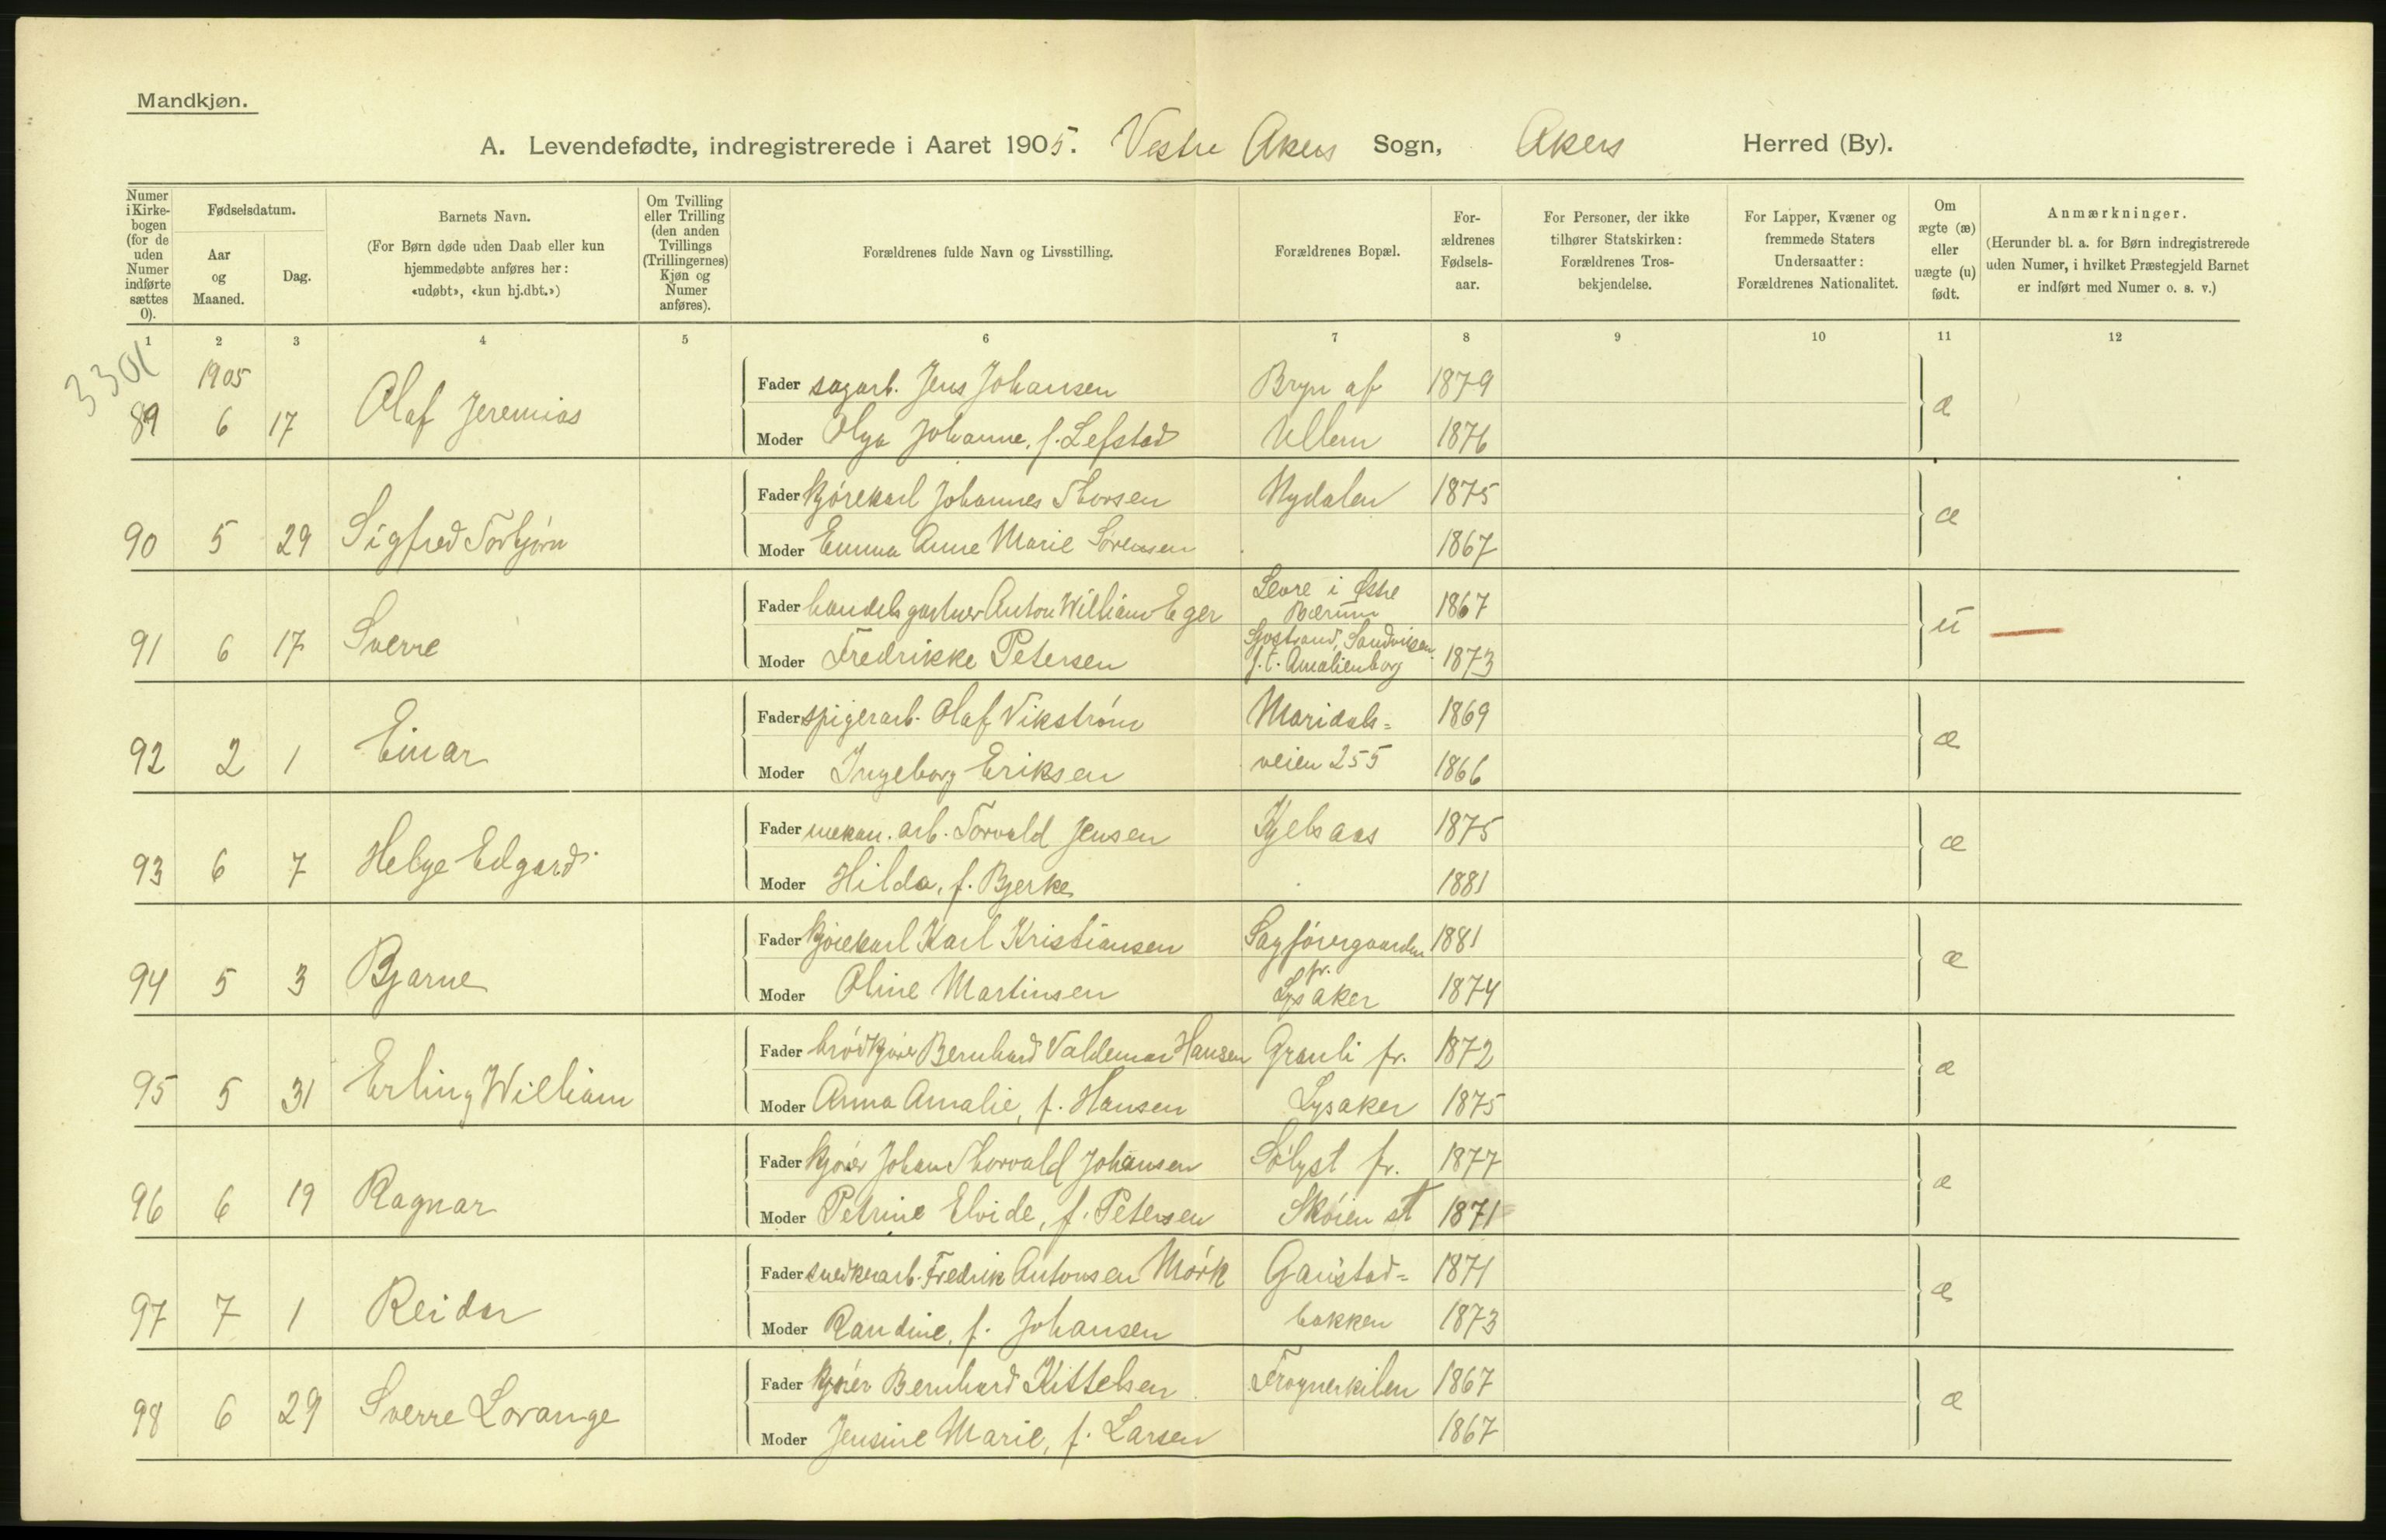 Mandkjøn.
A. Levendefødte, indregistrerede i Aaret 1905. Vestre Akers Sogn, Akers Herred (By).
Numer i Kirkebogen (for de uden Numer indførte sættes 0).
Fødselsdatum.
Aar og Maaned.
Dag.
Barnets Navn.
(For Børn døde uden Daab eller kun hjemmedøbte anføres her: «udøbt», «kun hj.dbt.»)
Om Tvilling eller Trilling (den anden Tvillings (Trillingernes) Kjøn og Numer anføres).
Forældrenes fulde Navn og Livsstilling.
Forældrenes Bopæl.
Forældrenes Fødselsaar.
For Personer, der ikke tilhører Statskirken: Forældrenes Trosbekjendelse.
For Lapper, Kvæner og fremmede Staters Undersaatter: Forældrenes Nationalitet.
Om ægte (æ) eller uægte (u) født.
Anmærkninger.
(Herunder bl. a. for Børn indregistrerede uden Numer, i hvilket Præstegjeld Barnet er indført med Numer o. s. v.)
1 2 3 4 5 6 7 8 9 10 11 12
3301
1905
Fader sagarb. Jens Johansen Bryn af 1879
89 6 17 Olaf Jeremias æ
Moder Olga Johanne, f. Lefstad Ullern 1876
Fader kjørekarl Johannes Thorsen Nydalen 1875
90 5 29 Sigfred Torbjørn æ
Moder Emma Anne Marie Sørensen 1867
Fader handelsgartner Anton William Eger Levre i Østre Bærum 1867
91 6 17 Sverre u
Moder Fredrikke Petersen Sjøstrand, Sandviken f.t. Amalienborg 1873
Fader spigerarb. Olaf Vikstrøm Maridals= 1869
92 2 1 Einar æ
Moder Ingeborg Eriksen veien 255 1866
Fader mekan. arb. Torvald Jensen Kjelsaas 1875
93 6 7 Helge Edgard æ
Moder Hilda, f. Bjerke 1881
Fader kjørekarl Karl Kristiansen Sagførergaarden 1881
94 5 3 Bjarne æ
Moder Oline Martinsen pr. Lysaker 1874
Fader brødkjører Bernhard Valdemar Hansen Granli pr. 1872
95 5 31 Erling William æ
Moder Anna Amalie, f. Hansen Lysaker 1875
Fader kjører Johan Thorvald Johansen Sølyst pr. 1877
96 6 19 Ragnar æ
Moder Petrine Elvide, f. Petersen Skøien st 1871
Fader snedkerarb. Fredrik Antonsen Mørk Gaustad= 1871
97 7 1 Reidar æ
Moder Randine, f. Johansen bakken 1873
Fader kjører Bernhard Kittelsen Frognerkilen 1867
98 6 29 Sverre Lorange æ
Moder Jensine Marie, f. Larsen 1867